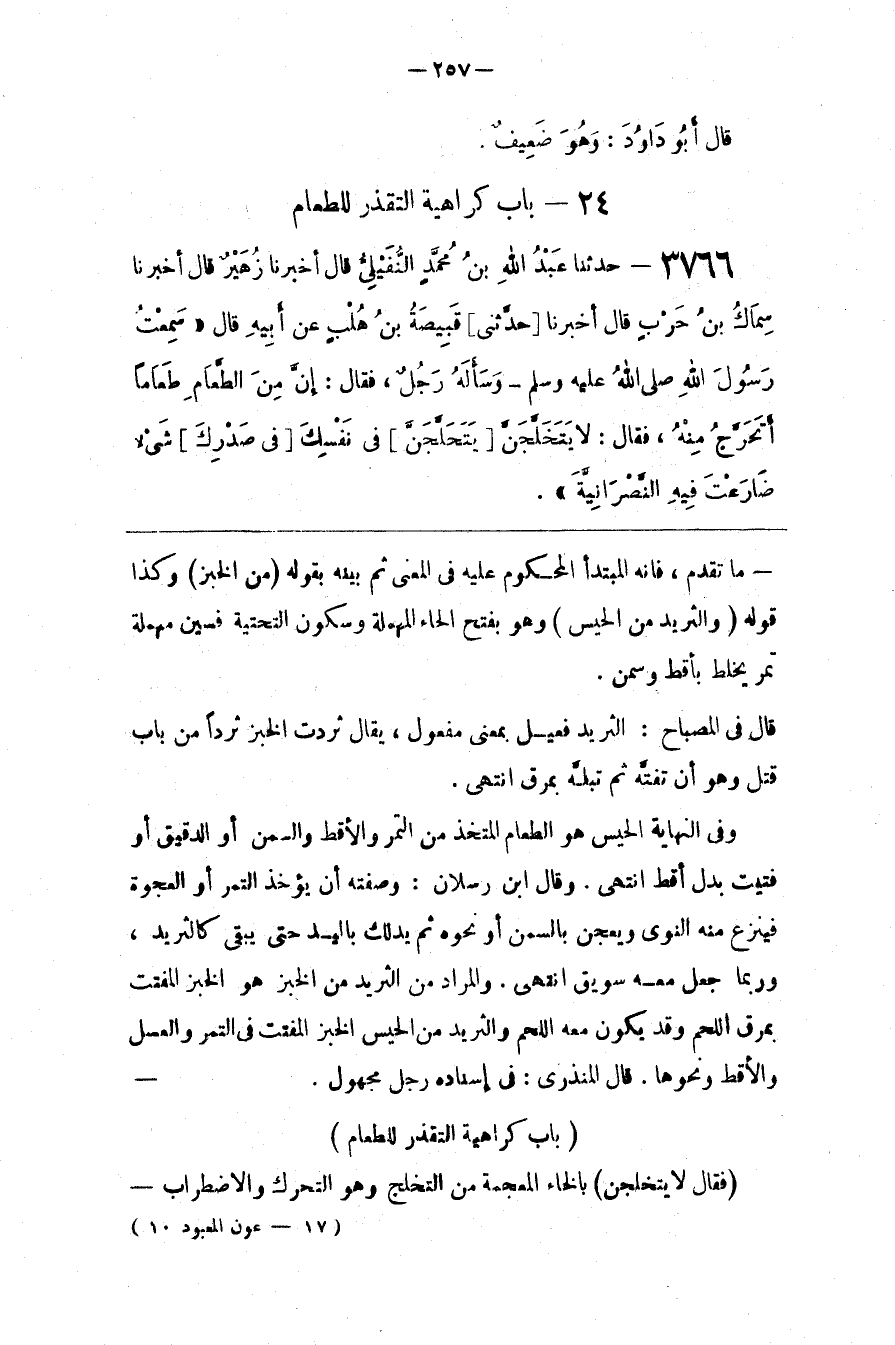 — ٢٥٧ —
قال أَبُو دَاوُدَ : وَهُوَ ضَعِيفٌ .
٢٤ — باب كراهية التقذر للطعام
٣٧٦٦ — حدثنا عَبْدُ اللهِ بنُ مُحمَّدٍ النُّفَيْلِىُّ قال أخبرنا زُهَيْرٌ قال أخبرنا
سِمَاكُ بنُ حَرْبٍ قال أخبرنا [ حدَّثنى ] قَبِيصَةُ بنُ هُلْبٍ عن أَبِيهِ قال « سَمِعْتُ
رَسُولَ اللهِ صلى اللهُ عليه وسلم ـ وَسَأَلَهُ رَجُلٌ ، فقال : إنَّ مِنَ الطَّعَامِ طَعَاماً
أَتَحَرَّجُ مِنْهُ ، فقال : لا يَتَخَلَّجَنَّ [ يَتَحَلَّجَنَّ ] فى نَفْسِكَ [ فى صَدْرِكَ ] شَىْءٌ
ضَارَعْتَ فِيهِ النَّصْرَانِيَّةَ » .
— ما تقدم ، فانه المبتدأ المحكوم عليه فى المعنى ثم بينه بقوله (من الخبز) وكذا
قوله ( والثريد من الحيس ) وهو بفتح الحاء المهملة وسكون التحتية فسين مهملة
تمر يخلط بأقط وسمن .
قال فى المصباح : الثريد فعيل بمعنى مفعول ، يقال ثردت الخبز ثرداً من باب
قتل وهو أن تفتَّه ثم تبلَّه بمرق انتهى .
وفى النهاية الحيس هو الطعام المتخذ من التمر والأقط والسمن أو الدقيق أو
فتيت بدل أقط انتهى . وقال ابن رسلان : وصفته أن يؤخذ التمر أو العجوة
فينزع منه النوى ويعجن بالسمن أو نحوه ثم يدلك باليد حتى يبقى كالثريد ،
وربما جعل معه سويق انتهى . والمراد من الثريد من الخبز هو الخبز المفتت
بمرق اللحم وقد يكون معه اللحم والثريد من الحيس الخبز المفتت فى التمر والعسل
والأقط ونحوها . قال المنذرى : فى إسناده رجل مجهول . —
( باب كراهية التقذر للطعام )
(فقال لا يتخلجن) بالخاء المعجمة من التخلج وهو التحرك والاضطراب —
( ١٧ — عون المعبود ١٠ )